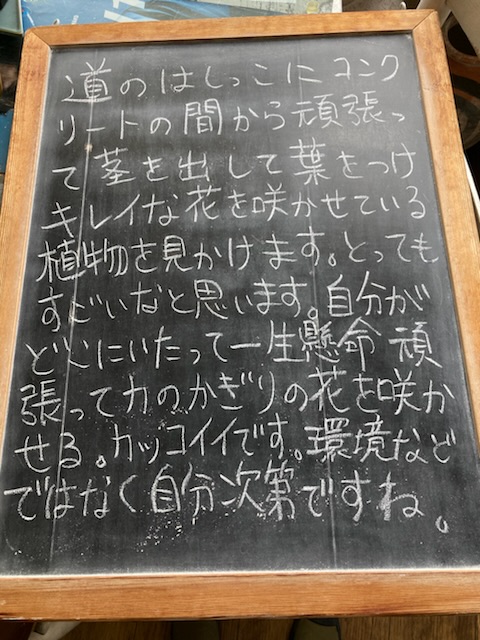 道のはしっこにコンク
リートの間から頑張っ
て茎を出して葉をつけ
キレイな花を咲かせている
植物を見かけます。とっても
すごいなと思います。自分が
どこにいたって一生懸命頑
張って力のかぎりの花を咲か
せる。カッコイイです。環境など
ではなく自分次第ですね。